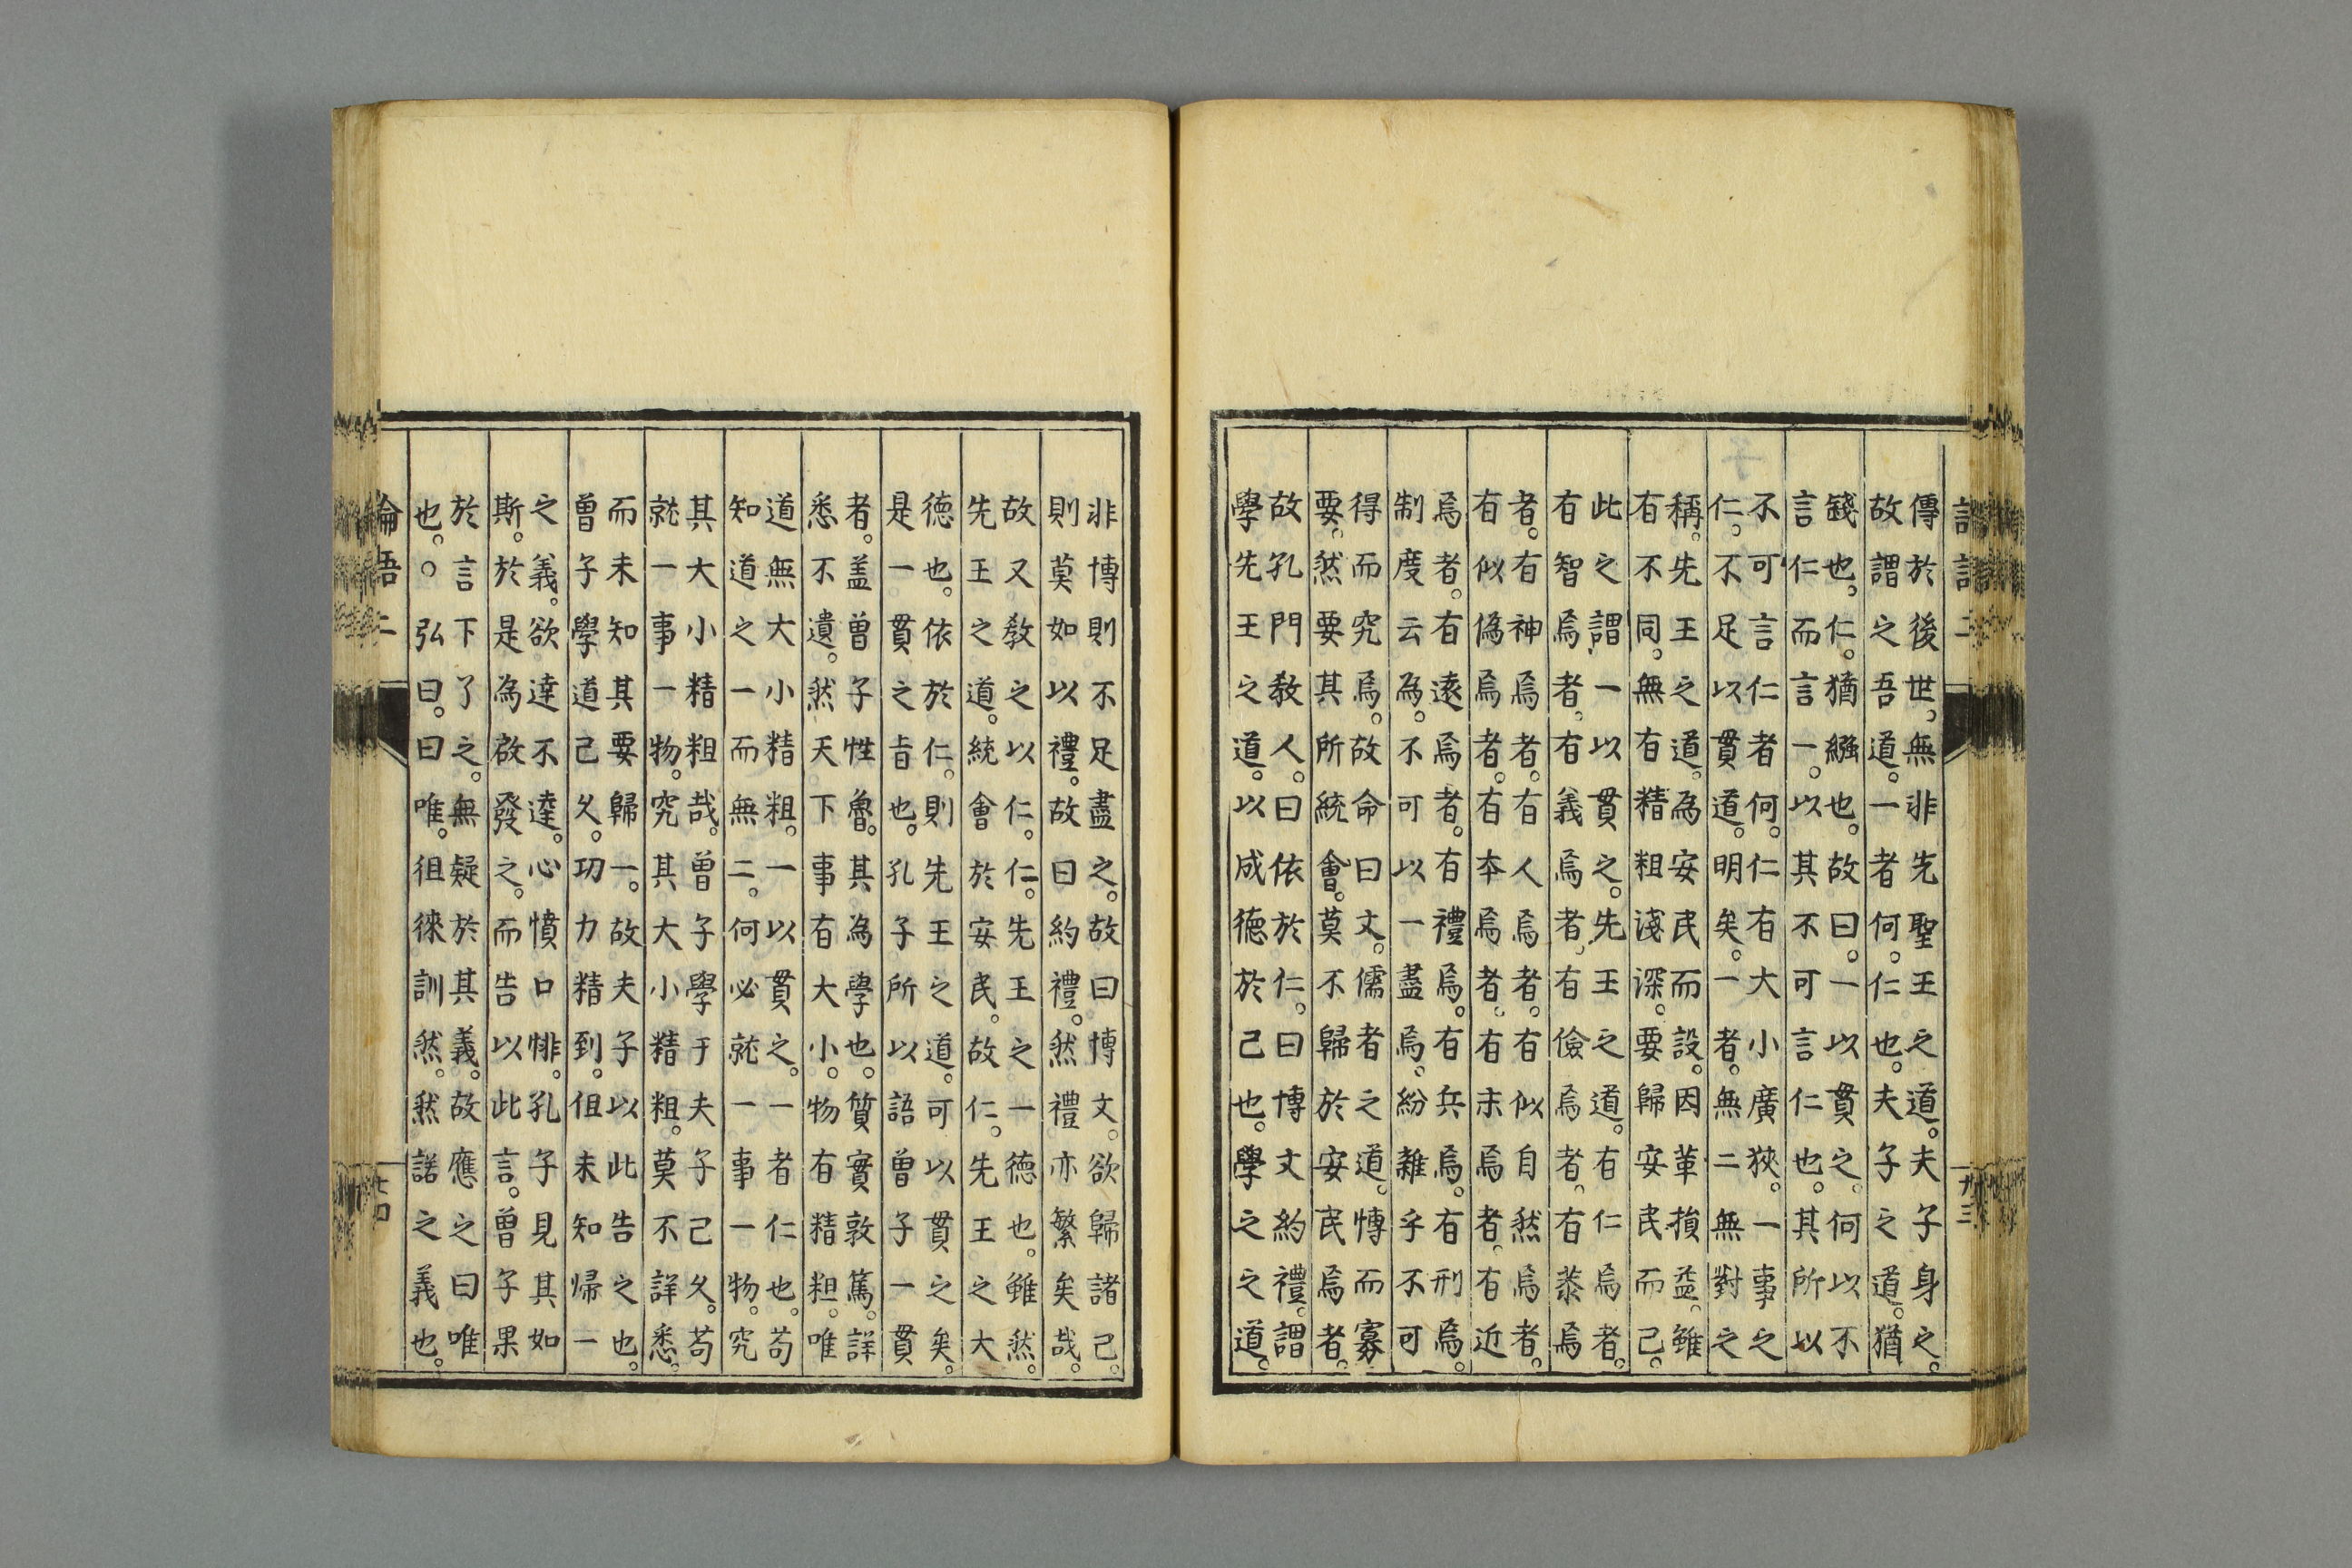 傳於後世。無非先聖王之道。夫子身之。
故謂之吾道。一者何。仁也。夫子之道。猶
錢也。仁。猶繦也。故曰。一以貫之。何以不
言仁而言一。以其不可言仁也。其所以
不可言仁者何。仁有大小廣狹。一事之
仁。不足以貫道。明矣。一者。無二無對之
稱。先王之道。為安民而設。因革損益。雖
有不同。無有精粗淺深。要歸安民而已。
此之謂一以貫之。先王之道。有仁焉者。
有智焉者。有義焉者。有儉焉者。有恭焉
者。有神焉者。有人焉者。有似自然焉者。
有似偽焉者。有本焉者。有末焉者。有近
焉者。有遠焉者。有禮焉。有兵焉。有刑焉。
制度云為。不可以一盡焉。紛雜乎不可
得而究焉。故命曰文。儒者之道。博而寡
要。然要其所統會。莫不歸於安民焉者。
故孔門教人。曰依於仁。曰博文約禮。謂
學先王之道。以成德於己也。學之之道。
非博則不足盡之。故曰博文。欲歸諸己。
則莫如以禮。故曰約禮。然禮亦繁矣哉。
故又教之以仁。仁。先王之一德也。雖然。
先王之道。統會於安民。故仁。先王之大
德也。依於仁。則先王之道。可以貫之矣。
是一貫之旨也。孔子所以語曾子一貫
者。盖曾子性魯。其為學也。質實敦篤。詳
悉不遺。然天下事有大小。物有精粗。唯
道無大小精粗。一以貫之。一者仁也。苟
知道之一而無二。何必就一事一物。究
其大小精粗哉。曾子學于夫子已久。苟
就一事一物。究其大小精粗。莫不詳悉。
而未知其要歸一。故夫子以此告之也。
曾子學道已久。功力精到。但未知帰一
之義。欲達不達。心憤口悱。孔子見其如
斯。於是為啟發之。而告以此言。曾子果
於言下了之。無疑於其義。故應之曰唯
也。○弘曰。曰唯。徂徠訓然。然諾之義也。
論語二